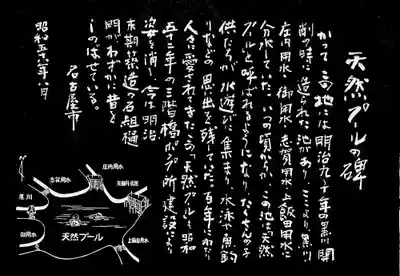 天然プールの碑
かつてこの地には明治九〜十年の黒川開
削の時に造られた池があり、ここより黒川
庄内用水 御用水 志賀用水 上飯田用水に
分水していた。いつの頃からか、この池は天然
プールと呼ばれるようになり、たくさんの子
供たちが水遊びに集まり、水泳や魚釣
りなどの思い出を残していた。百年にわたり
人々に愛されてきたこの天然プールも昭和
五十三年の三階橋ポンプ所建設により
姿を消し、今は明治
末期築造の石組樋
門がわずかに昔を
しのばせている。
名古屋市
昭和五六年八月
庄内用水
志賀用水
黒川
天然プール
御用水
上飯田用水